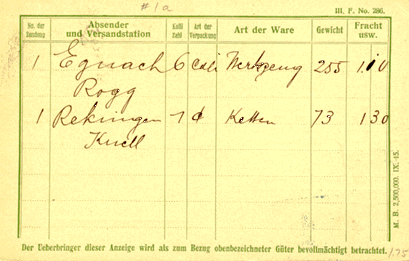 #1a
III. P. No. 286.
No. der Sendung
Absender und Versandstation
Kolli Zahl
Art der Verpackung
Art der Ware
Gewicht
Fracht usw.
1 Egnach 6 Colli Werkzeug 255 1.10
Rogg
1 Rekingen 7 ¢ Ketten 73 130
Knell
M. B. 2,500,000. IX.-15.
Der Ueberbringer dieser Anzeige wird als zum Bezug obenbezeichneter Güter bevollmächtigt betrachtet.
1.75